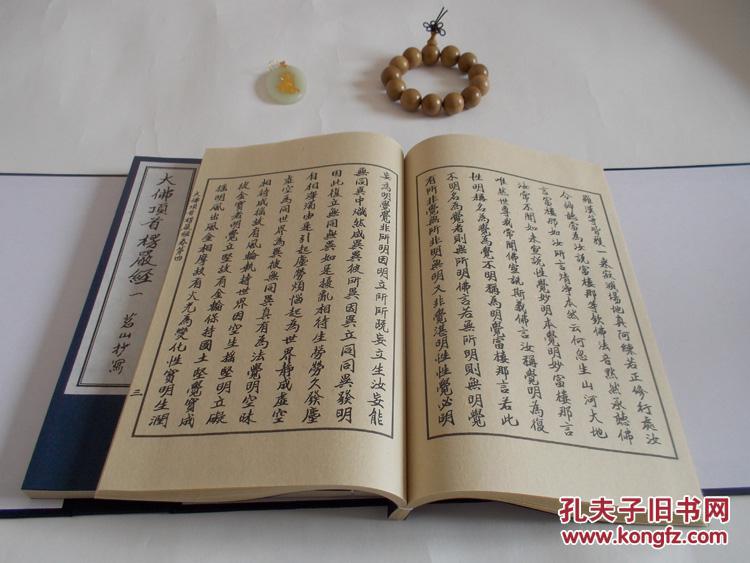 羅漢等皆獲一乘寂滅場地真阿練若正修行處汝
今諦聽當為汝說富樓那等欽佛法音默然承聽佛
言富樓那如汝所言清淨本然云何忽生山河大地
汝常不聞如來宣說性覺妙明本覺明妙富樓那言
唯然世尊我常聞佛宣說斯義佛言汝稱覺明為復
性明稱名為覺為覺不明稱為明覺富樓那言若此
不明名為覺者則無所明佛言若無所明則無明覺
有所非覺無所非明無明又非覺湛明性性覺必明
妄為明覺覺非所明因明立所所既妄立生汝妄能
無同異中熾然成異異彼所異因異立同同異發明
因此復立無同無異如是擾亂相待生勞勞久發塵
自相渾濁由是引起塵勞煩惱起為世界靜成虛空
虛空為同世界為異彼無同異真有為法覺明空昧
相待成搖故有風輪執持世界因空生搖堅明立礙
彼金寶者明覺立堅故有金輪保持國土堅覺寶成
搖明風出風金相摩故有火光為變化性寶明生潤
大佛頂首楞嚴經卷第四
三
大佛頂首楞嚴經 一
茗山抄寫
孔夫子旧书网
www.kongfz.com